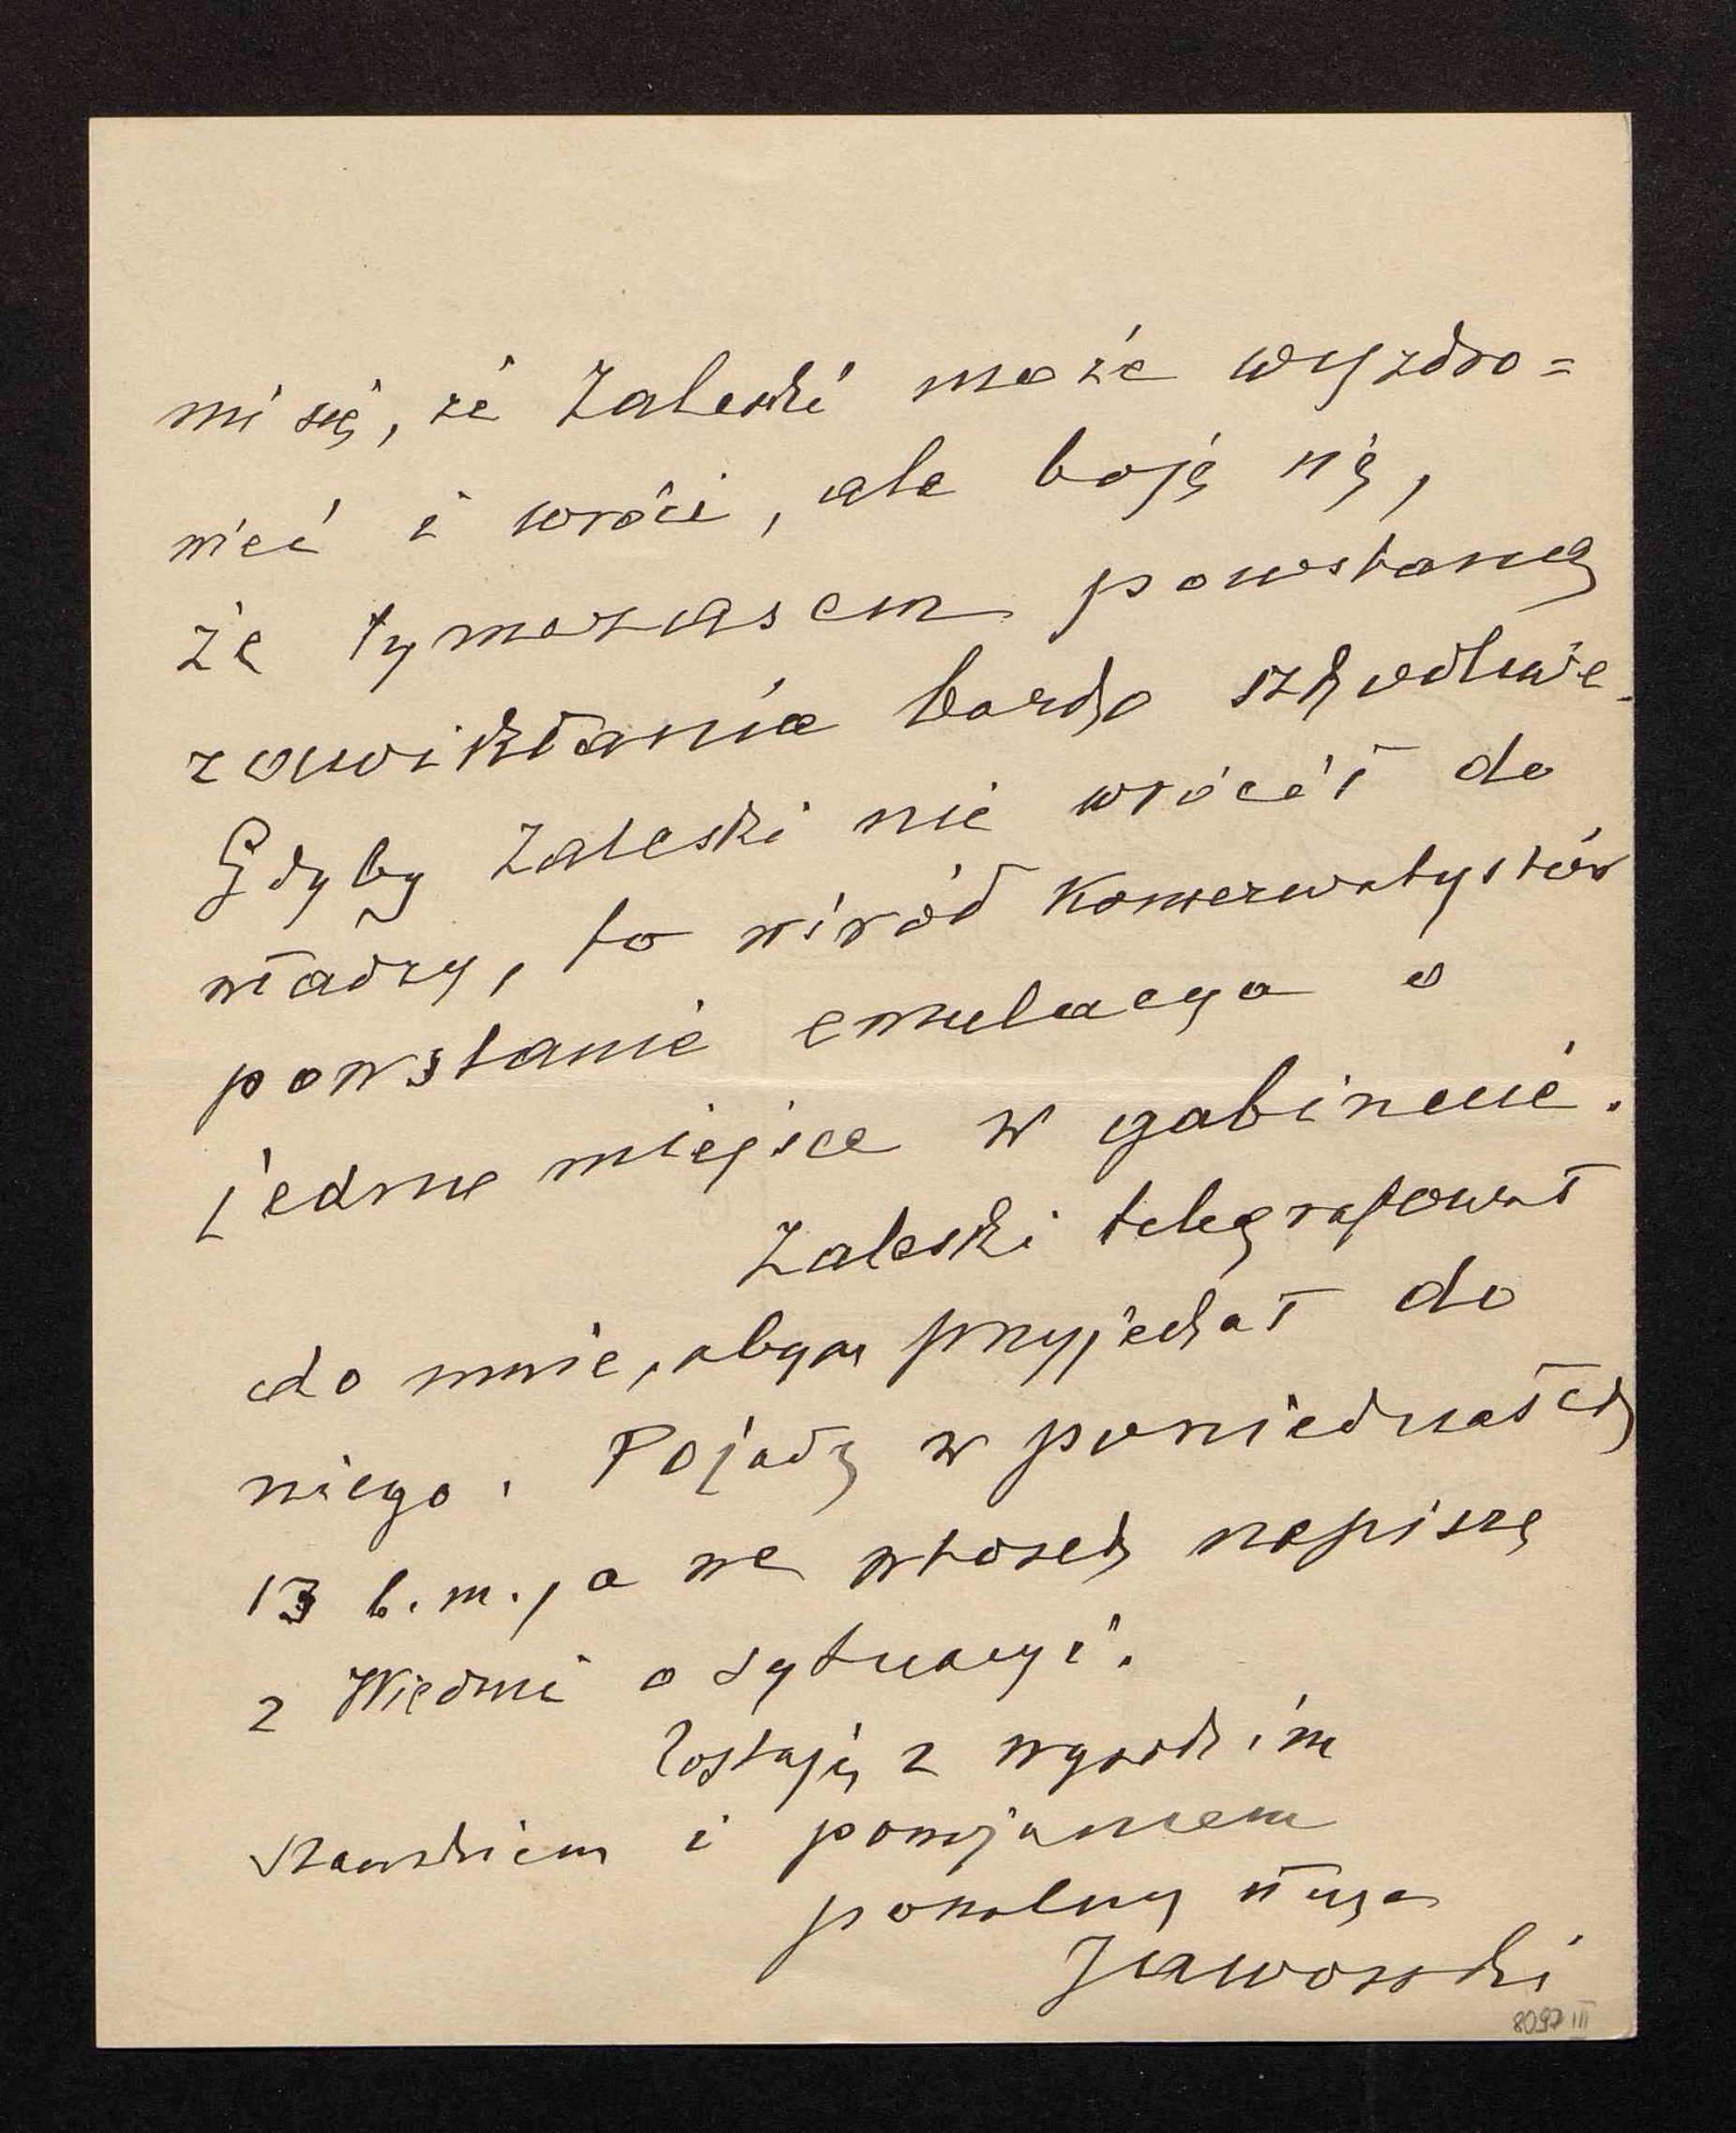 mi się, że Zaleski może wyzdro=
wieć i wróci, ale boję się,
że tymczasem powstaną
zawikłania bardzo szkodliwe.
Gdyby Zaleski nie wrócił do
władzy, to wśród konserwatystów
powstanie emulacya o
jedno miejsce w gabinecie.
Zaleski telegrafował
do mnie, abym przyjechał do
niego. Pojadę w poniedziałek
13 b.m., a we wtorek napiszę
z Wiednia o sytuacyi.
Zostaję z wysokim
szacunkiem i poważaniem
powolny sługa
Jaworski
8097 III